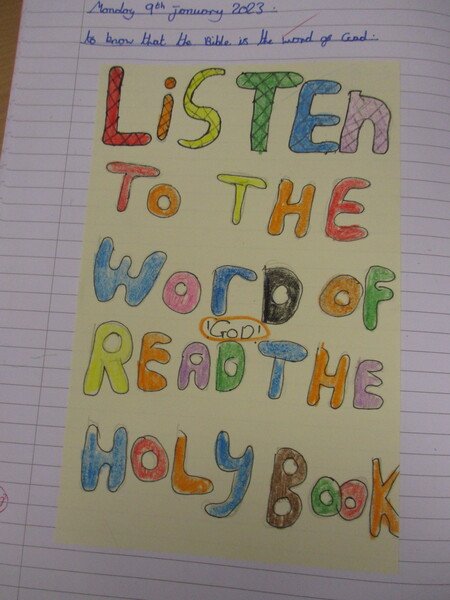 Monday 9th january 2023.
to know that the Bible is the word of God.
LiSTEn
To THE
WorD OF
!GOD!
READ THE
HOLY BooK